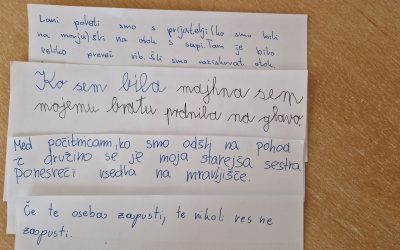 Lani poleti smo s prijatelji (ko smo bili
na morju) šli na otok s supi. Tam je bilo
veliko preveč rib. Šli smo raziskovat otok.
Ko sem bila majhna sem
mojemu bratu prdnila na glavo.
Med počitnicami, ko smo odšli na pohod
z družino se je moja starejša sestra
ponesreči usedla na mravljišče.
Če te oseba zapusti, te nikoli res ne
zapusti.